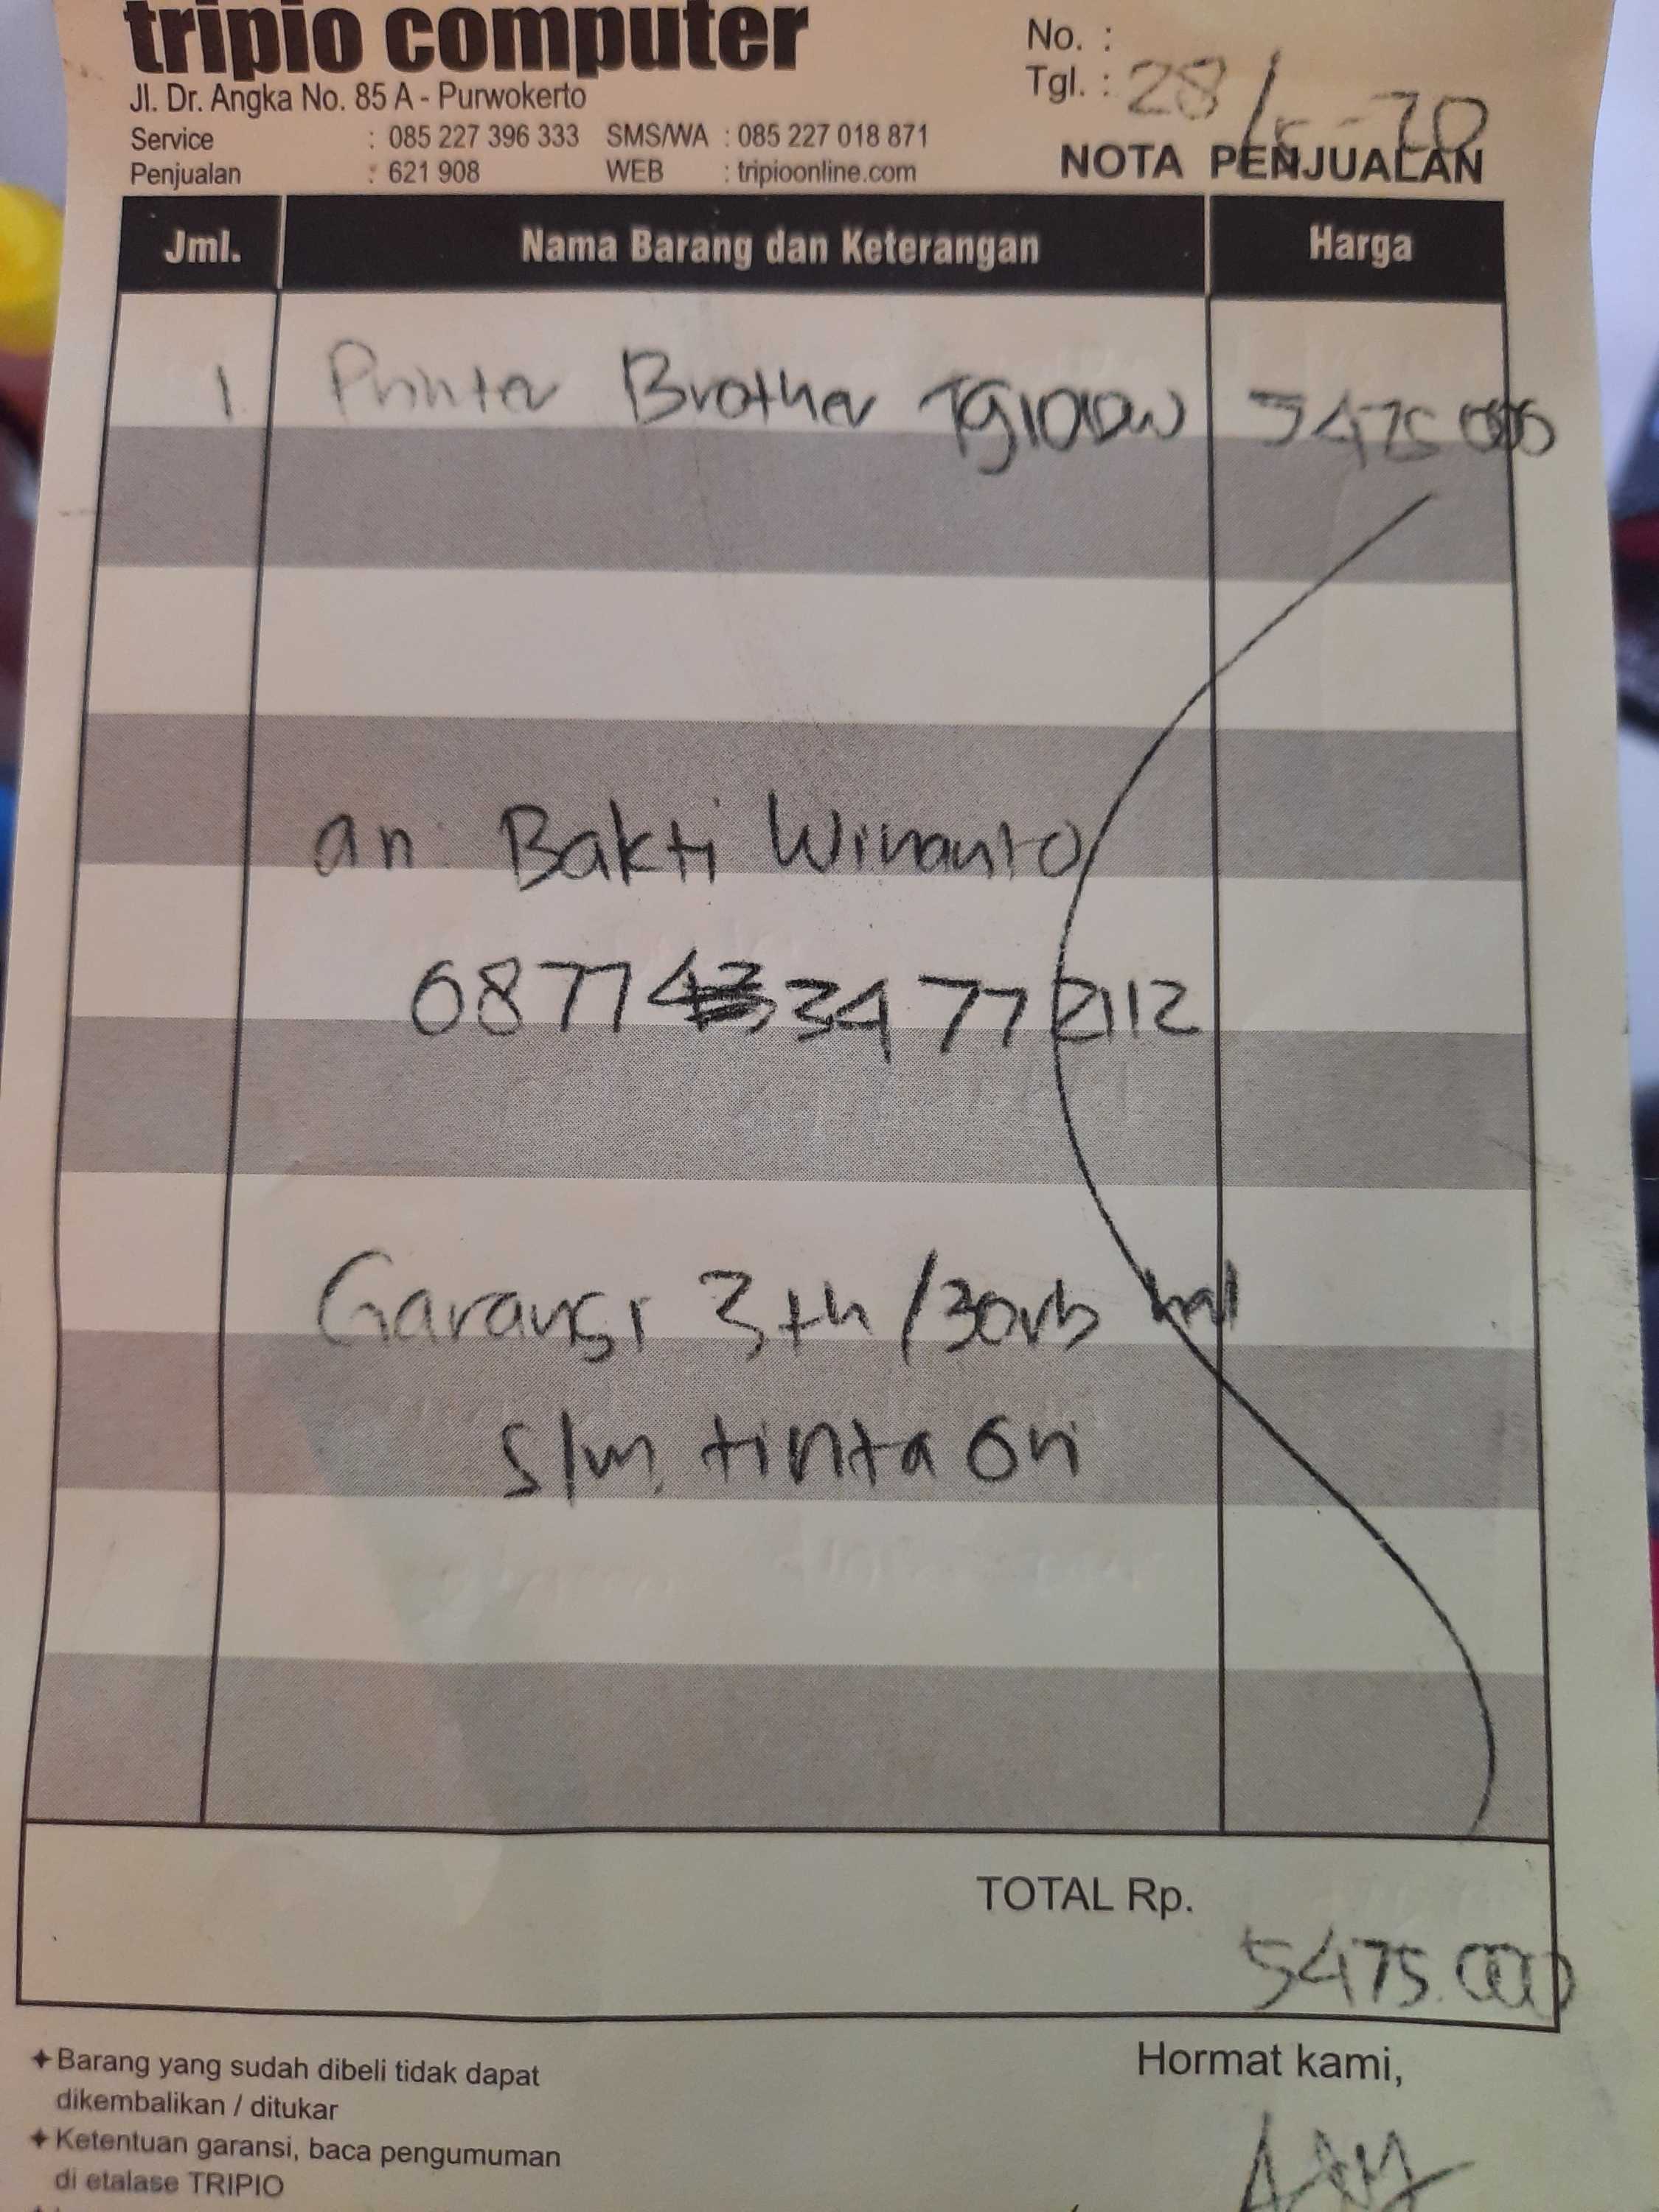 tripio computer
Jl. Dr. Angka No. 85 A - Purwokerto
Service : 085 227 396 333 SMS/WA : 085 227 018 871
Penjualan : 621 908 WEB : tripioonline.com
No. :
Tgl. : 28/5-20
NOTA PENJUALAN
Jml. Nama Barang dan Keterangan Harga
1 Printer Brother 5475 000
an. Bakti Winanto
0877 34 77 2112
Garansi 3th/30rb hal
s/m tinta Ori
TOTAL Rp.
5475.000
✦ Barang yang sudah dibeli tidak dapat
dikembalikan / ditukar
✦ Ketentuan garansi, baca pengumuman
di etalase TRIPIO
Hormat kami,